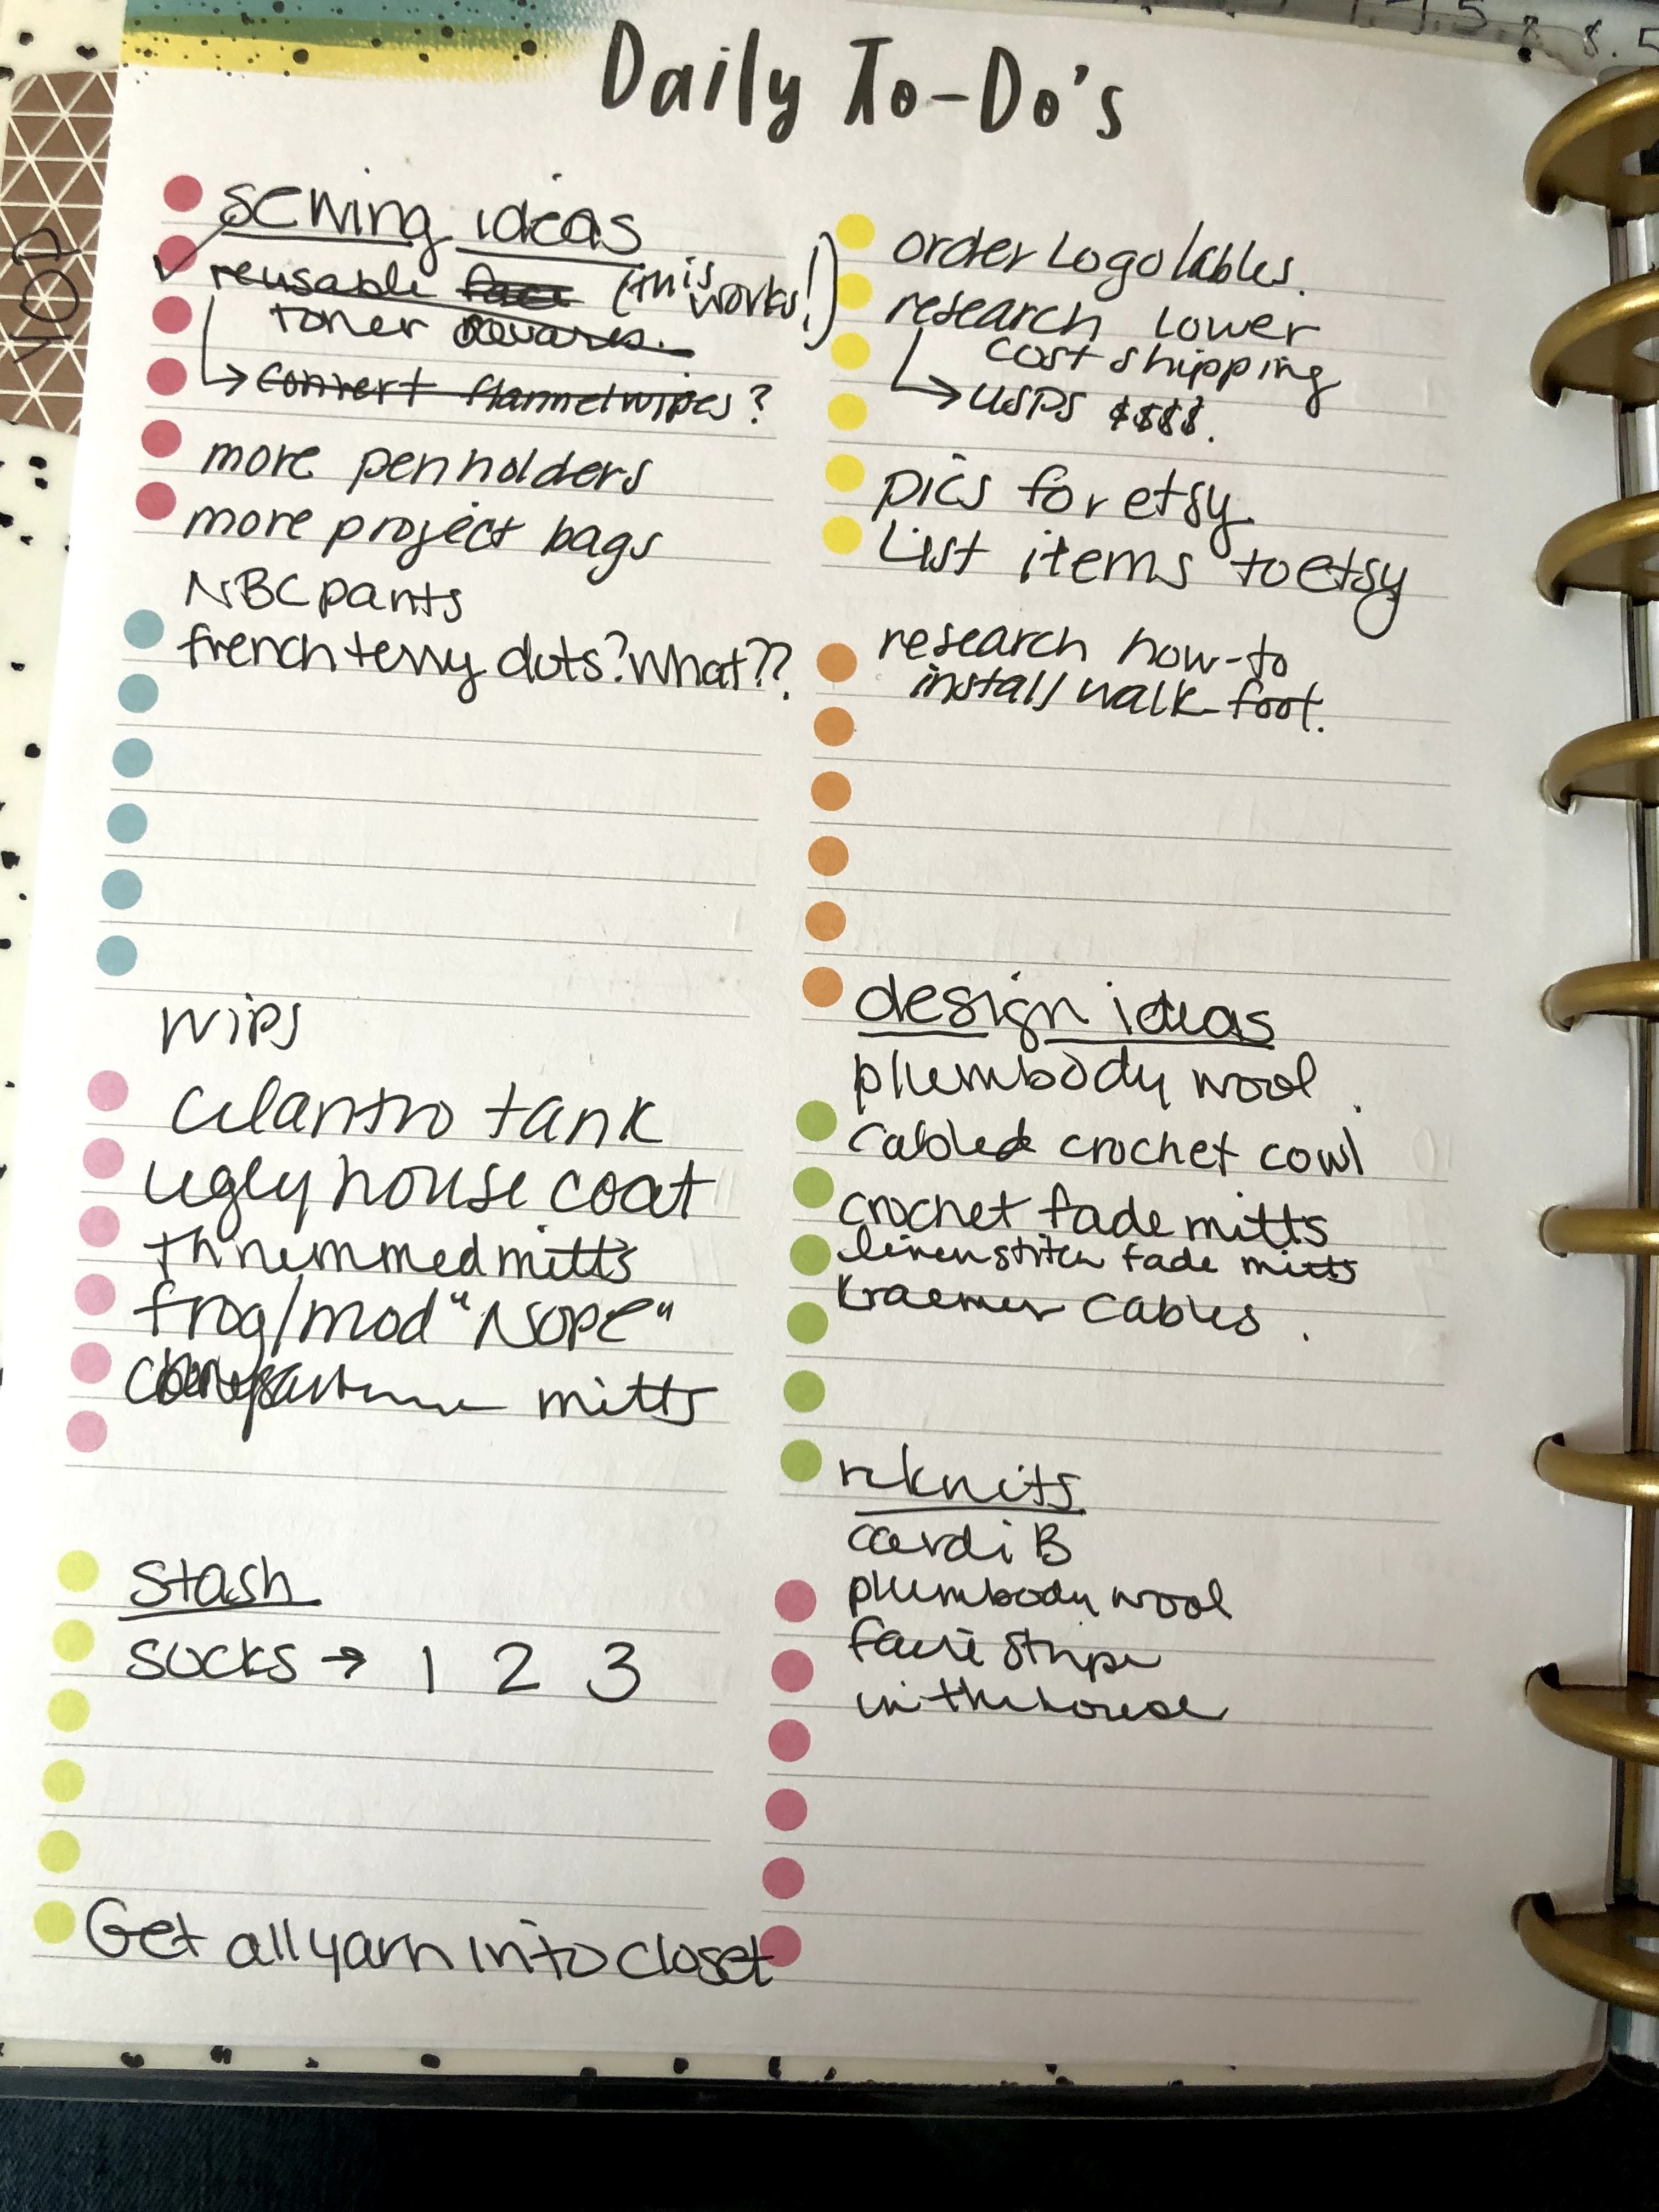 Daily To-Do's
sewing ideas
reusable face (this works!)
toner squares.
→ convert flannel wipes?
more penholders
more project bags
NBC pants
french terry dots? What??
wips
cilantro tank
ugly house coat
mitts
frog/mod "Nope"
mitts
stash
socks → 1 2 3
Get all yarn into closet
order Logo lables.
research lower
cost shipping
→ USPS $$$$.
pics for etsy
List items to etsy
research how-to
install walk foot.
design ideas
plumbody wool
cabled crochet cowl
crochet fade mitts
linen stitch fade mitts
Kraemer cables.
reknits
cardi B
plumbody wool
stripe
in the house